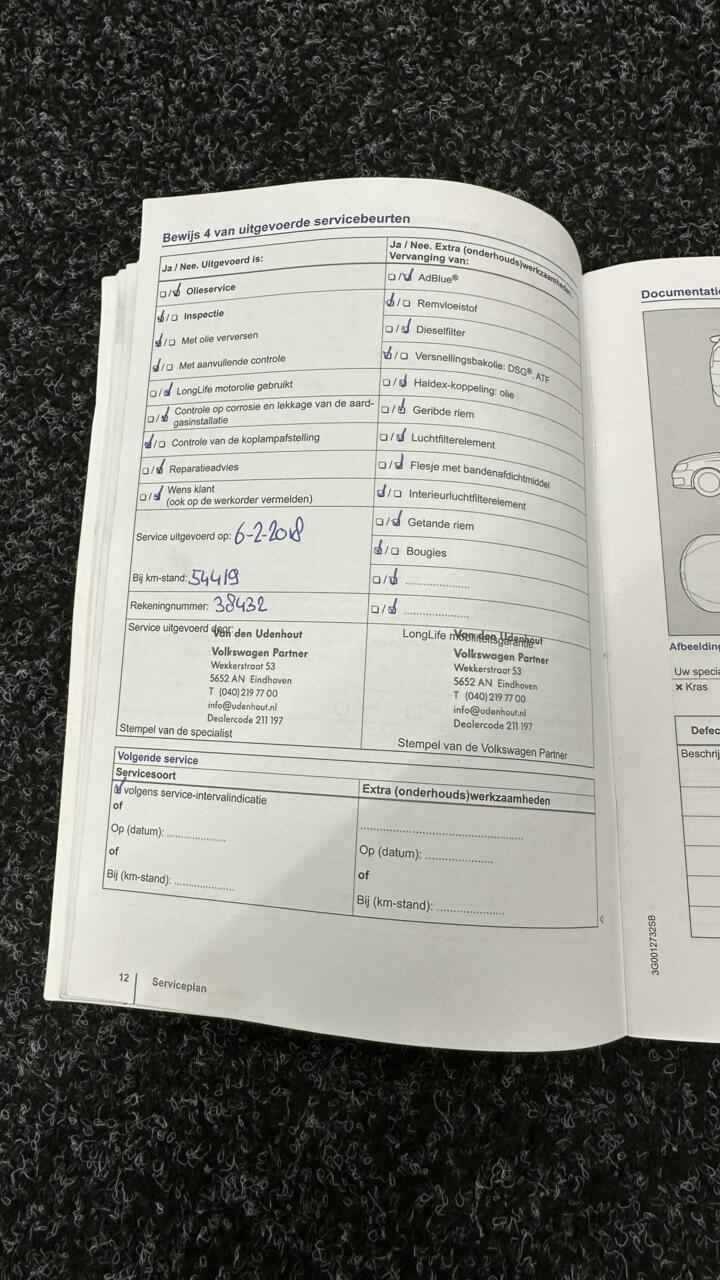 Bewijs 4 van uitgevoerde servicebeurten
Ja / Nee. Uitgevoerd is:
☐/☑ Olieservice
☑/☐ Inspectie
☑/☐ Met olie verversen
☑/☐ Met aanvullende controle
☐/☑ LongLife motorolie gebruikt
☐/☑ Controle op corrosie en lekkage van de aard-
gasinstallatie
☑/☐ Controle van de koplampafstelling
☐/☑ Reparatieadvies
☐/☑ Wens klant
(ook op de werkorder vermelden)
Service uitgevoerd op: 6-2-2018
Bij km-stand: 54419
Rekeningnummer: 38432
Service uitgevoerd door:
Van den Udenhout
Volkswagen Partner
Wekkerstraat 53
5652 AN Eindhoven
T (040) 219 77 00
info@udenhout.nl
Dealercode 211 197
Stempel van de specialist
Ja / Nee. Extra (onderhouds)werkzaamheden:
Vervanging van:
☐/☑ AdBlue®
☑/☐ Remvloeistof
☐/☑ Dieselfilter
☑/☐ Versnellingsbakolie: DSG®, ATF
☐/☑ Haldex-koppeling: olie
☐/☑ Geribde riem
☐/☑ Luchtfilterelement
☐/☑ Flesje met bandenafdichtmiddel
☑/☐ Interieurluchtfilterelement
☐/☑ Getande riem
☑/☐ Bougies
☐/☑ ....................
☐/☑ ....................
LongLife mobiliteitsgarantie:
Van den Udenhout
Volkswagen Partner
Wekkerstraat 53
5652 AN Eindhoven
T (040) 219 77 00
info@udenhout.nl
Dealercode 211 197
Stempel van de Volkswagen Partner
Volgende service
Servicesoort
☑ volgens service-intervalindicatie
of
Op (datum): ....................
of
Bij (km-stand): ....................
Extra (onderhouds)werkzaamheden
..................................................
Op (datum): ....................
of
Bij (km-stand): ....................
12 Serviceplan
Documentatie
Afbeelding
Uw specia
× Kras
Defec
Beschrij
3G0012732SB